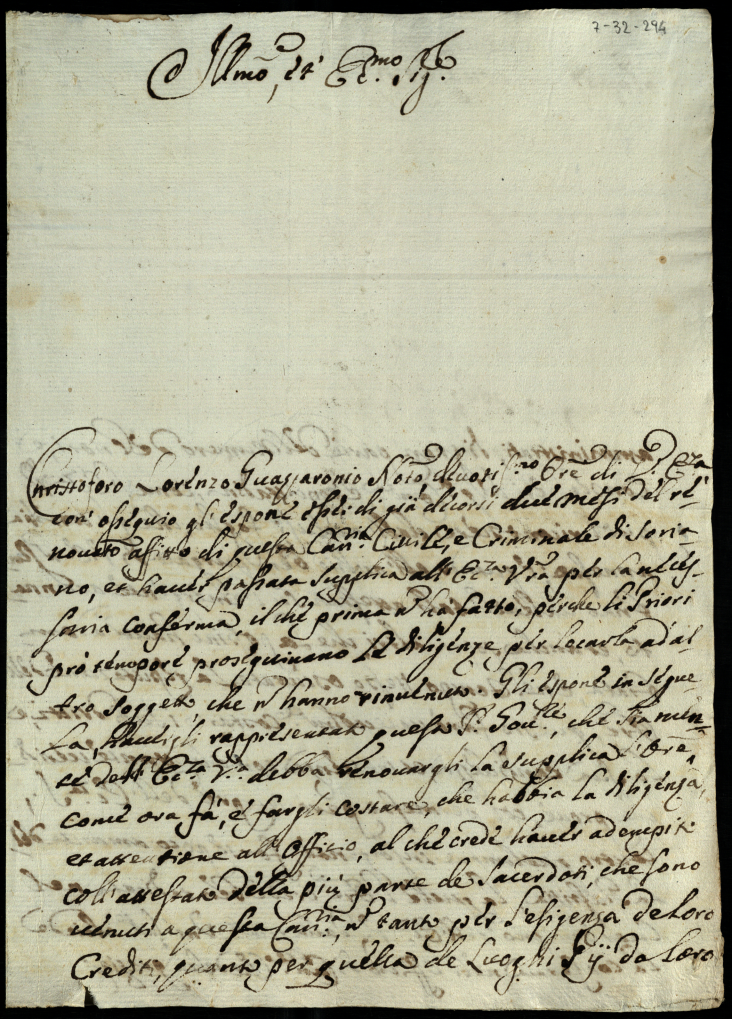 7-32-294
Illmo, et Ecc.mo Sig.re
Christoforo Lorenzo Guasparonio Noto. devotiss.mo Ore di V. Ecc.za
con ossequio gl'espone essere di già decorsi due mesi del ri-
novato affitto di questa Canc.ria Civile, e Criminale di Soria-
no, et haver passata supplica all'Ecc.za Vra per la neces-
saria conferma, il che prima nò ha fatto, perche li Priori
prò tempore proseguivano le diligenze per locarla ad al-
tro soggetto, che nò hanno rinvenuto. Gli espone in segue
La, havergli rappresentato questo S. Gov.re, che sia men-
te dell'Ecc.za V.ra debba rinovargli la supplica l'Ore
come ora fà, e fargli costare, che habbia la diligenza,
et attentione all'Officio, al che crede haver adempito
coll'attestato della più parte de Sacerdoti, che sono
venuti a questa Canc.ria, nò tanto per l'esigenza de loro
Crediti, quanto per quella de Luoghi Pij da loro